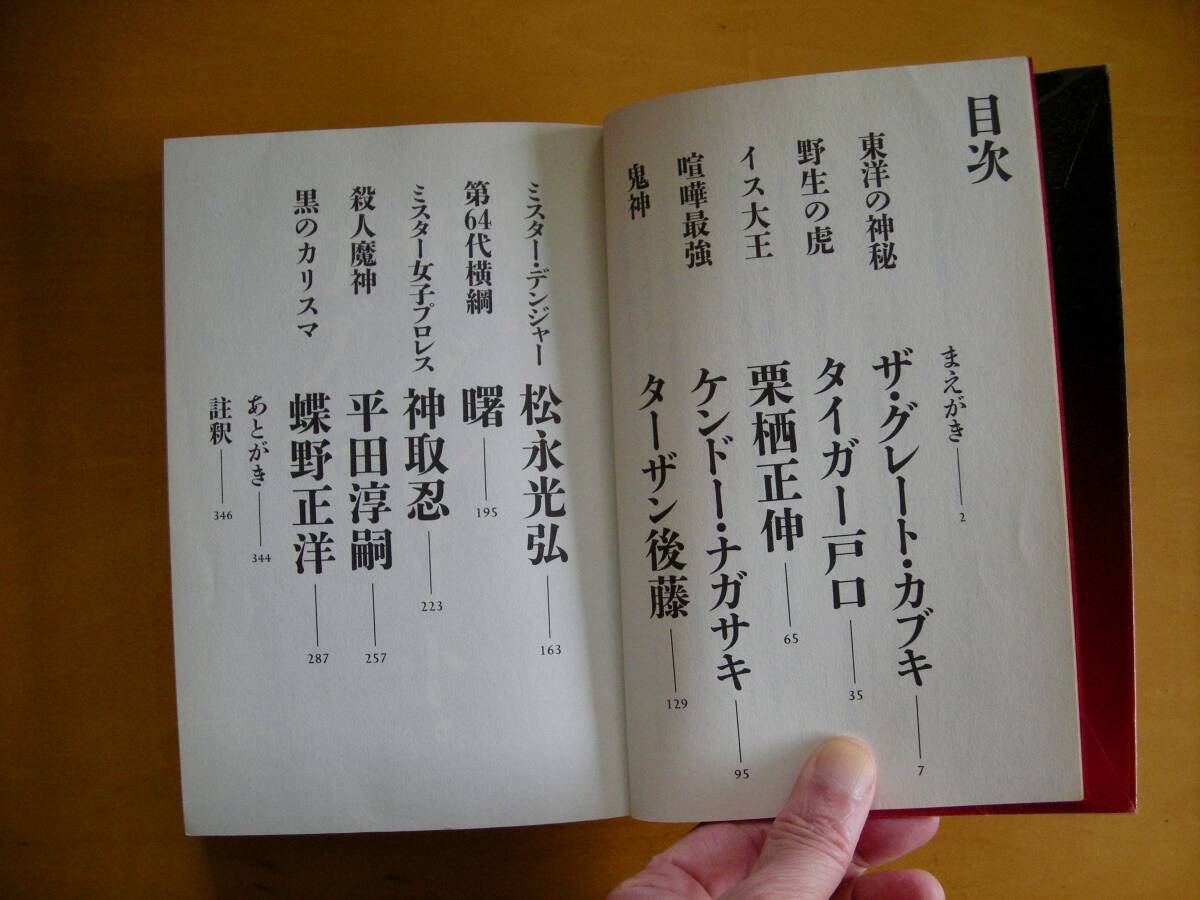 目次
まえがき 2
東洋の神秘 ザ・グレート・カブキ 7
野生の虎 タイガー戸口 35
イス大王 栗栖正伸 65
喧嘩最強 ケンドー・ナガサキ 95
鬼神 ターザン後藤 129
ミスター・デンジャー 松永光弘 163
第64代横綱 曙 195
ミスター女子プロレス 神取忍 223
殺人魔神 平田淳嗣 257
黒のカリスマ 蝶野正洋 287
あとがき 344
註釈 346